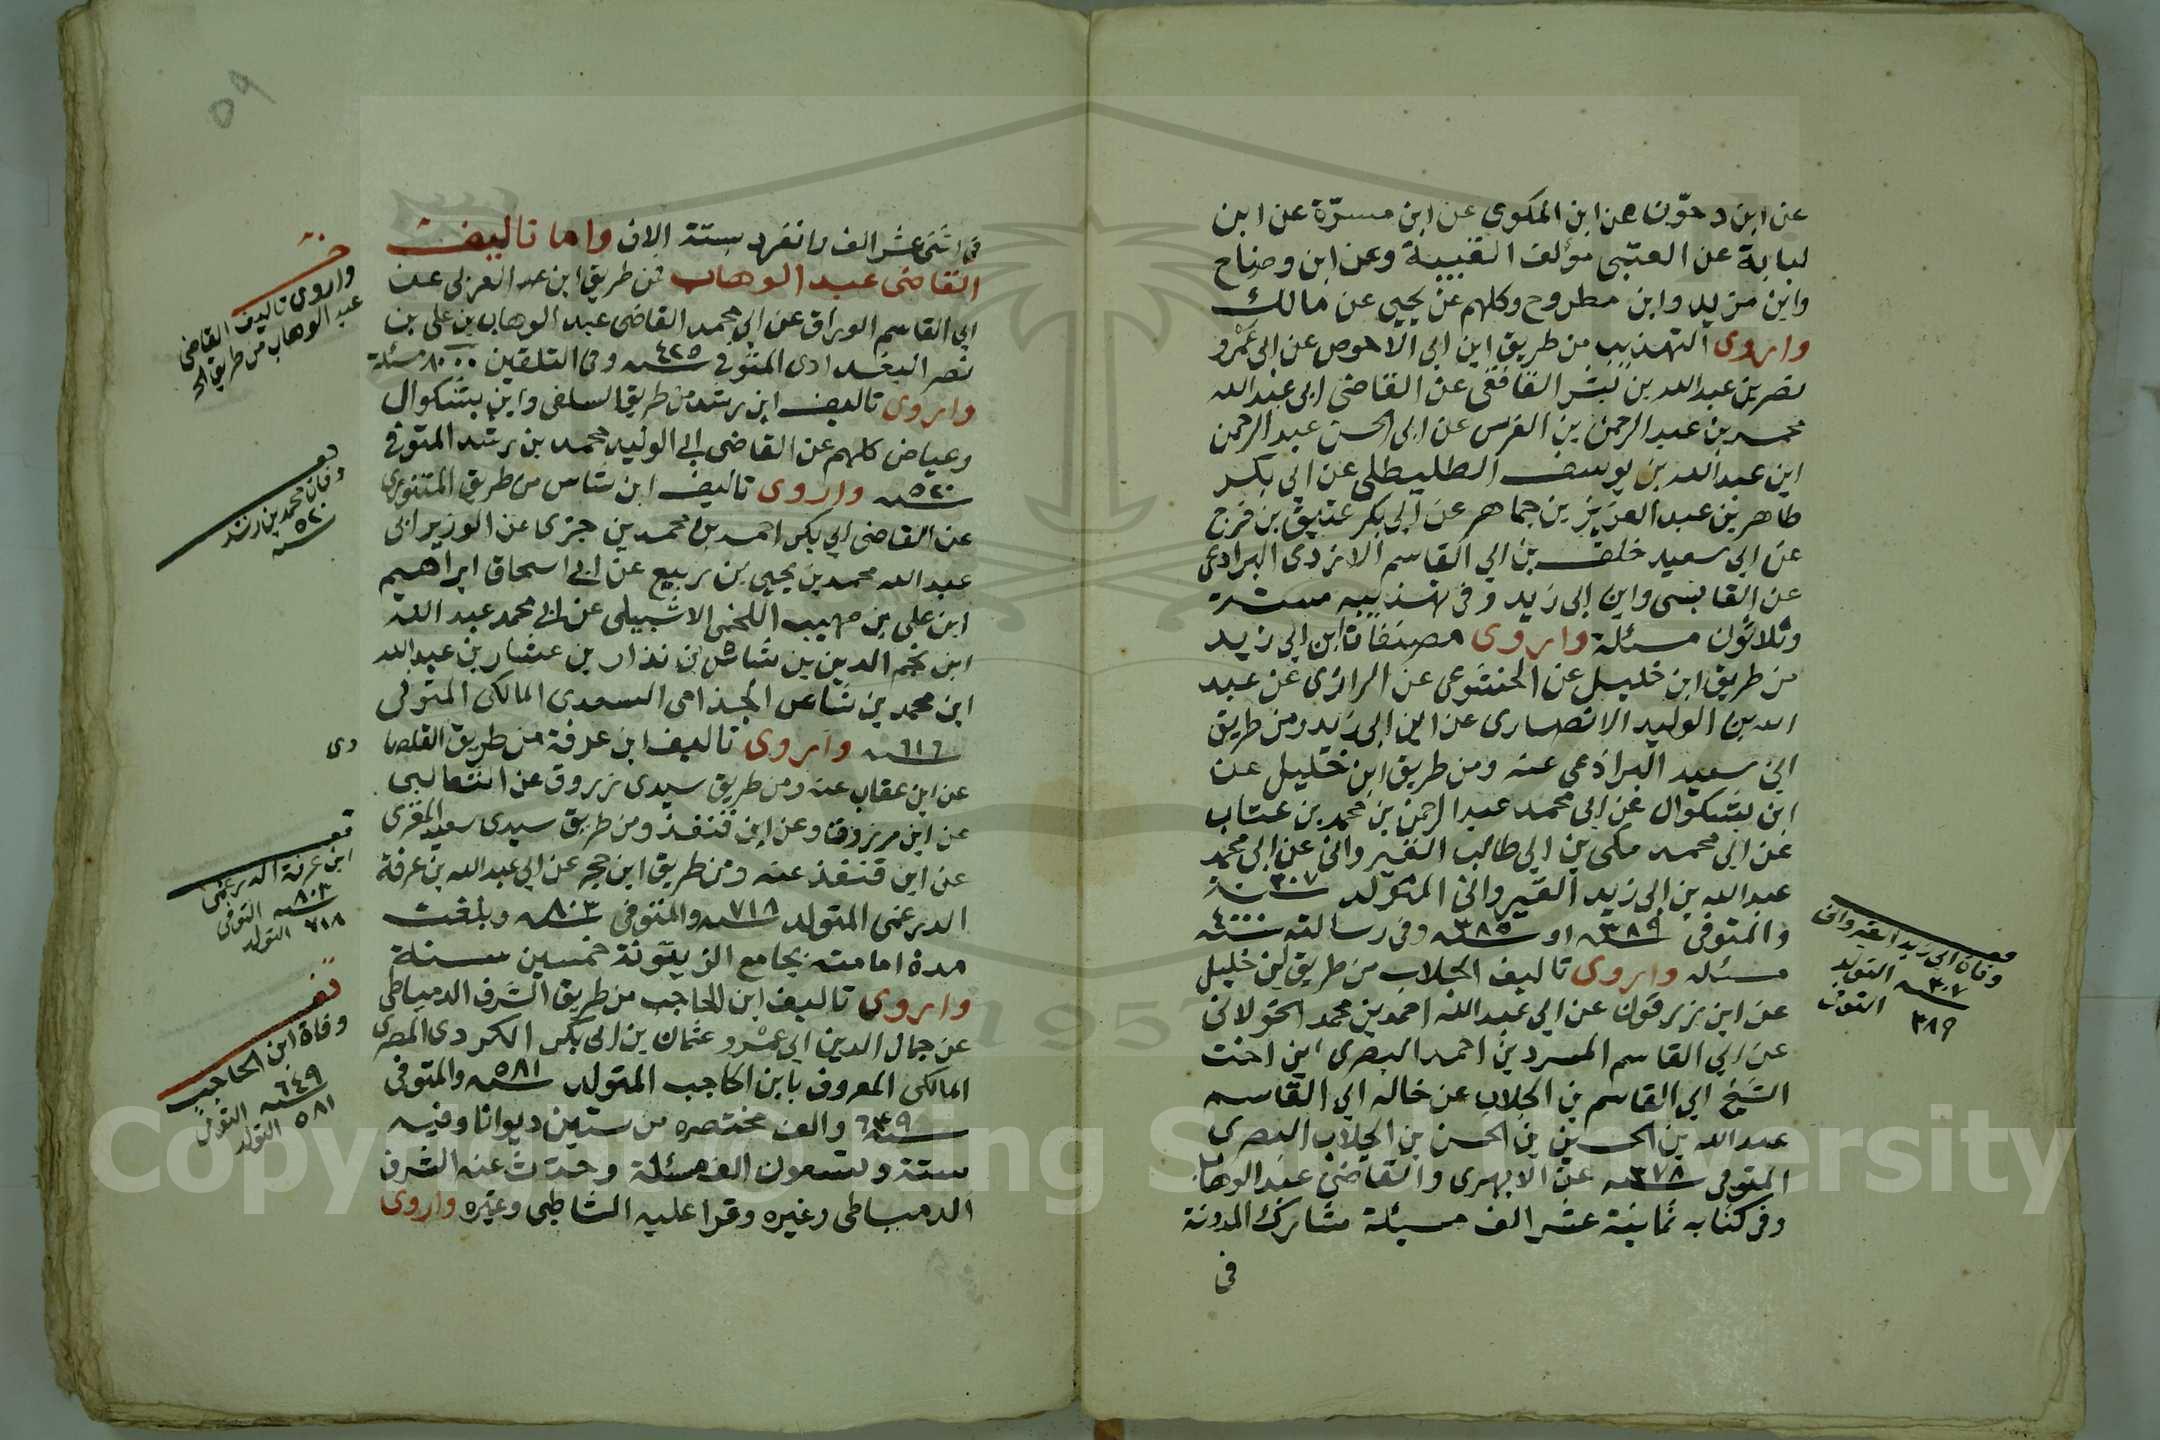 عن ابن دحون عن ابن المكوى عن ابن مسرّة عن ابن
لبابة عن العتبى مؤلف العتبية وعن ابن وضاح
وابن مزيد وابن مطروح وكلهم عن يحيى عن مالك
واروى التهذيب من طريق ابن ابى الاحوص عن ابى عمرو
نصر بن عبدالله بن بشر الغافقى عن القاضى ابى عبدالله
محمد بن عبد الرحمن بن الفرس عن ابى الحسن عبد الرحمن
ابن عبدالله بن يوسف الطليطلى عن ابى بكر
طاهر بن عبد العزيز بن جماهر عن ابى بكر عتيق بن فرج
عن ابى سعيد خلف بن ابى القاسم الازدى البرادعى
عن القابسى وابن ابى زيد وفى تهذيبه ستة
وثلاثون مسئلة واروى مصنفات ابن ابى زيد
من طريق ابن خليل عن الخشوعى عن الرازى عن عبد
الله بن الوليد الانصارى عن ابن ابى زيد ومن طريق
ابى سعيد البراذعى عنه ومن طريق ابن خليل عن
ابن بشكوال عن ابى محمد عبد الرحمن بن محمد بن عتاب
عن ابى محمد مكى بن ابى طالب القيروانى عن ابى محمد
عبدالله بن ابى زيد القيروانى المتولد سنة ٣٠٧
والمتوفى سنة ٣٨٩ او سنة ٣٨٥ وفى رسالته ٤٠٠٠
مسئله واروى تاليف الجلاب من طريق ابن خليل
عن ابن زرقون عن ابى عبدالله احمد بن محمد الخولانى
عن ابى القاسم المسدد بن احمد البصرى ابن اخت
الشيخ ابى القاسم بن الجلاب عن خاله ابى القاسم
عبدالله بن الحسين بن الحسن بن الجلاب البصرى
المتوفى سنة ٣٧٨ عن الابهرى والقاضى عبد الوهاب
وفى كتابه ثمانية عشر الف مسئلة مشارك المدونة
فى
وفاة ابى زيد القيروانى
سنة ٣٠٧ المتولد
٣٨٩ المتوفى
٥٩
فى اثنى عشر الف وانفرد بستة الاف واما تاليف
القاضى عبد الوهاب فن طريق ابن عبد العزلى عن
ابى القاسم الوراق عن ابى محمد القاضى عبد الوهاب بن على بن
نصر البغدادى المتوفى سنة ٤٢٥ وفى التلقين ٨٠٠٠ مسئلة
واروى تاليف ابن رشد من طريق السلفى وابن بشكوال
وعياض كلهم عن القاضى ابى الوليد محمد بن رشد المتوفى
سنة ٥٢٠ واروى تاليف ابن شاس من طريق المنتورى
عن القاضى ابى بكر احمد بن محمد بن جزى عن الوزير ابى
عبدالله محمد بن يحيى بن ربيع عن ابى اسحاق ابراهيم
ابن على بن صهيب اللخمى الاشبيلى عن ابى محمد عبدالله
ابن نجم الدين بن شاش بن نذار بن عشار بن عبدالله
ابن محمد بن شاس الجذامى السعدى المالكى المتوفى
سنة ٦١٦ واروى تاليف ابن عرفة من طريق القلصا
دى
عن ابن عقاب عنه ومن طريق سيدى زروق عن الثعالبى
عن ابن مرزوق وعن ابن قنفذ ومن طريق سيدى سعيد المقرى
عن ابن قنفذ عنه ومن طريق ابن حجر عن ابى عبدالله بن عرفة
الدرغمى المتولد سنة ٧١٨ والمتوفى سنة ٨٠٣ وبلغت
مدة امامته بجامع الزيتونة خمسين سنة
واروى تاليف ابن الحاجب من طريق الشرف الدمياطى
عن جمال الدين ابى عمرو عثمان بن ابى بكر الكردى المصرى
المالكى المعروف بابن الحاجب المتولد سنة ٥٨١ والمتوفى
سنة ٦٤٩ والف مختصره من ستين ديوانا وفيه
ستة وتسعون الف مسئلة وحدث عنه الشرف
الدمياطى وغيره وقرا عليه الشاطبى وغيره واروى
واروى تاليف القاضى
عبد الوهاب من طريق الخ
وفاة محمد بن رشد
سنة ٥٢٠
ابن عرفة الدرغمى
سنة ٨٠٣ المتوفى
٧١٨ المتولد
وفاة ابن الحاجب
سنة ٦٤٩ المتوفى
٥٨١ المتولد
Copyright © King Saud University
1957